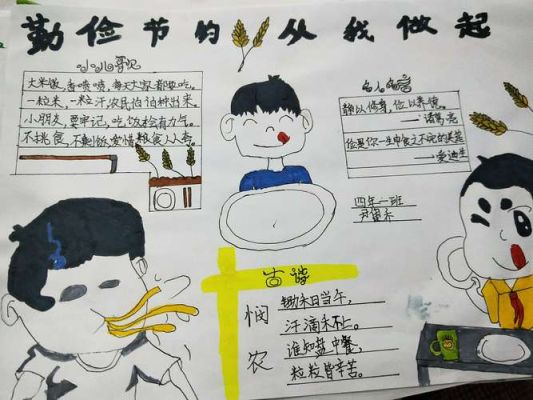 勤俭节约 从我做起
大米饭,香喷喷,每天大家都要吃。
一粒米,一粒汗,农民伯伯种出来。
小朋友,要牢记,吃饭才会有力气。
不挑食,不剩饭,爱惜粮食人人夸。
名人名言
静以修身,俭以养德。
——诸葛亮
俭是你一生中食之不完的美筵
——爱迪生
四年一班
古诗
悯农
锄禾日当午,
汗滴禾下土。
谁知盘中餐,
粒粒皆辛苦。